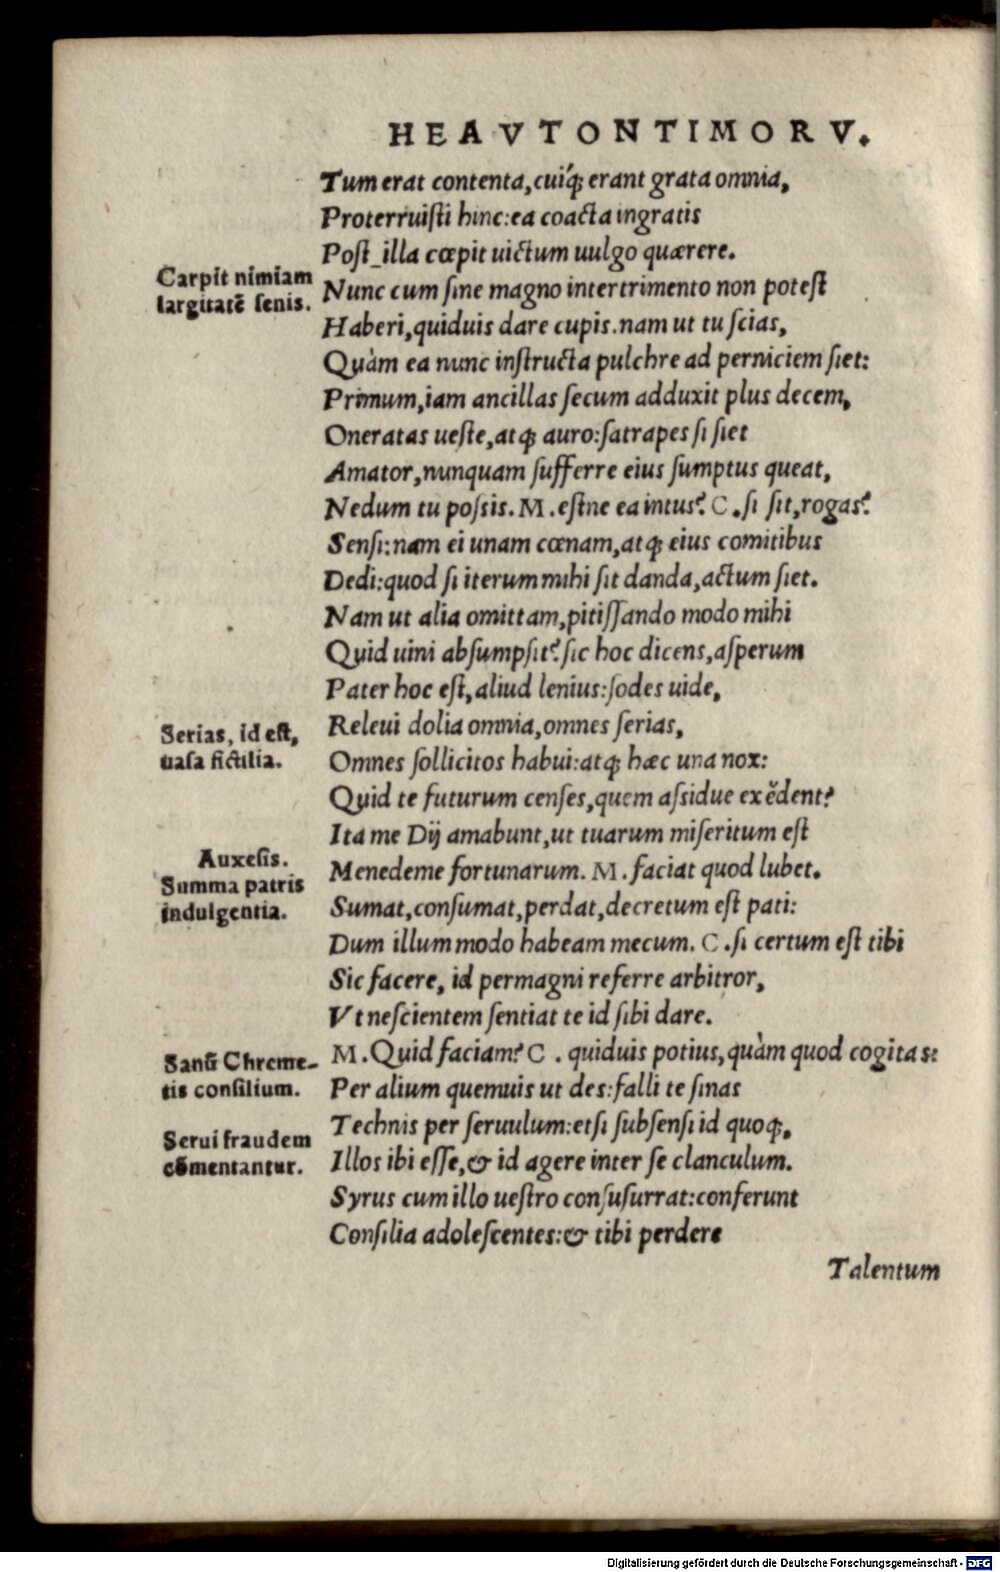 HEAVTONTIMORV.
Tum erat contenta,cuiq́; erant grata omnia,
Proterruiſti hinc:ea coacta ingratis
Poſt_illa cœpit uictum uulgo quærere.
Carpit nimiam
largitatẽ ſenis.
Nunc cum ſine magno intertrimento non poteſt
Haberi,quiduis dare cupis.nam ut tu ſcias,
Quàm ea nunc inſtructa pulchre ad perniciem ſiet:
Primum,iam ancillas ſecum adduxit plus decem,
Oneratas ueſte,atq; auro:ſatrapes ſi ſiet
Amator,nunquam ſufferre eius ſumptus queat,
Nedum tu poſsis. M.eſtne ea intus? C.ſi ſit,rogas?
Senſi:nam ei unam cœnam,atq; eius comitibus
Dedi:quod ſi iterum mihi ſit danda,actum ſiet.
Nam ut alia omittam,pitiſſando modo mihi
Quid uini abſumpſit? ſic hoc dicens,aſperum
Pater hoc eſt,aliud lenius:ſodes uide,
Serias, id eſt,
uaſa fictilia.
Releui dolia omnia,omnes ſerias,
Omnes ſollicitos habui:atq; hæc una nox:
Quid te futurum cenſes,quem aſsidue exĕdent?
Ita me Dij amabunt,ut tuarum miſeritum eſt
Auxeſis.
Summa patris
indulgentia.
Menedeme fortunarum. M.faciat quod lubet.
Sumat,conſumat,perdat,decretum eſt pati:
Dum illum modo habeam mecum. C.ſi certum eſt tibi
Sic facere, id permagni referre arbitror,
Vt neſcientem ſentiat te id ſibi dare.
Sanũ Chreme-
tis conſilium.
M.Quid faciam? C. quiduis potius,quàm quod cogitas:
Per alium quemuis ut des:falli te ſinas
Technis per ſeruulum:etſi ſubſenſi id quoq;,
Serui fraudem
cõmentantur.
Illos ibi eſſe,& id agere inter ſe clanculum.
Syrus cum illo ueſtro conſuſurrat:conferunt
Conſilia adoleſcentes:& tibi perdere
Talentum
Digitalisierung gefördert durch die Deutsche Forschungsgemeinschaft - DFG